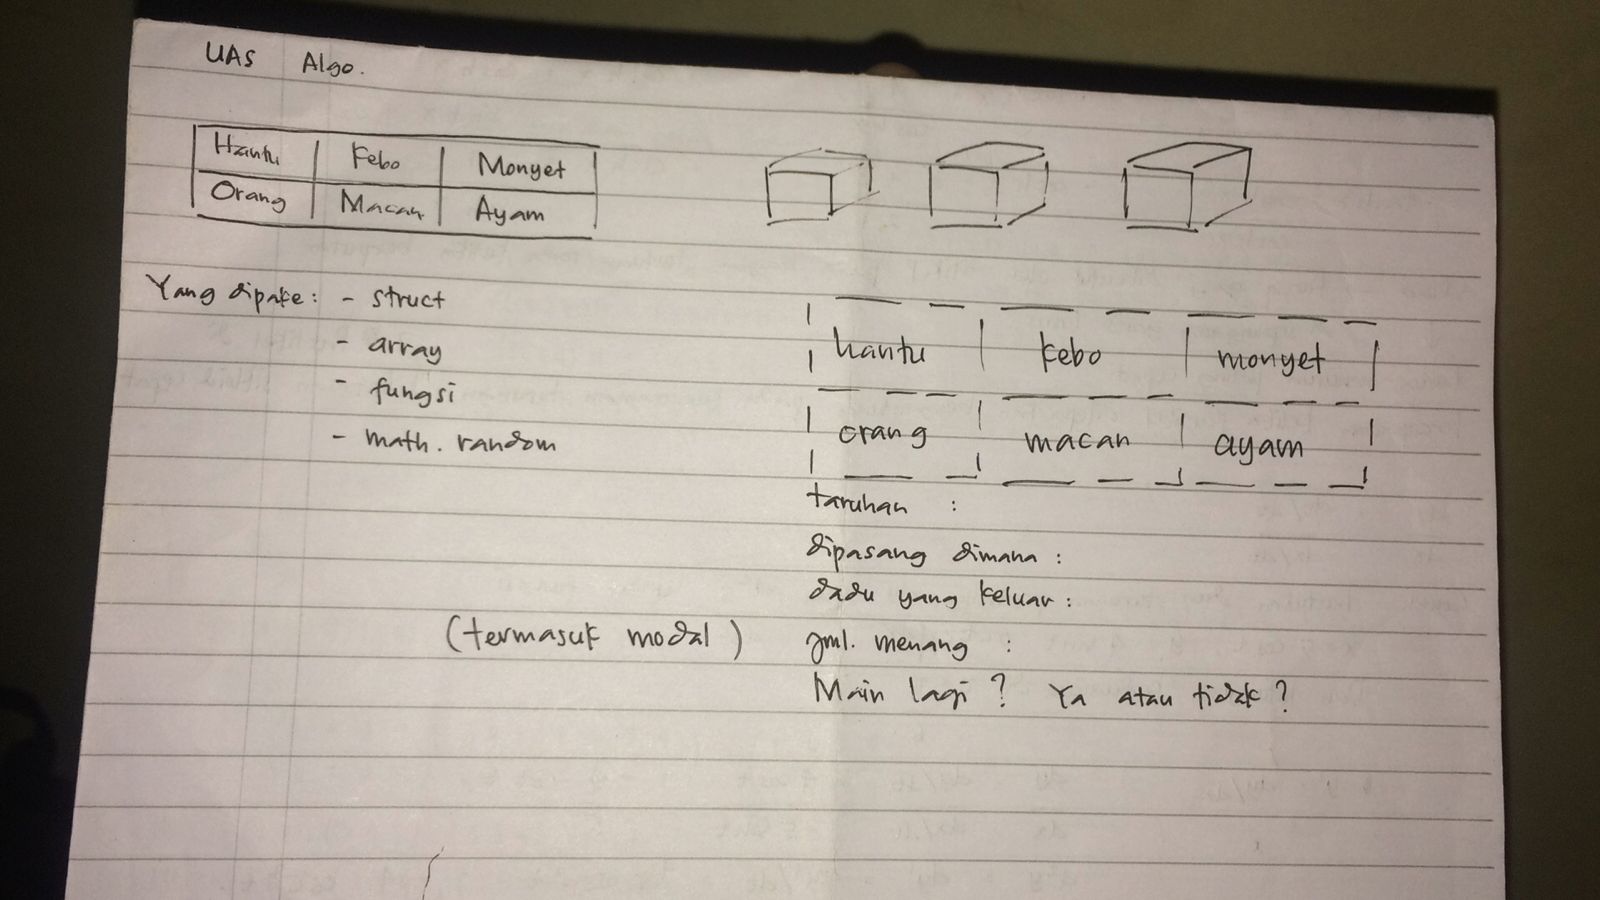 UAS Algo.
Hantu Kebo Monyet
Orang Macan Ayam
Yang dipake: - struct
- array
- fungsi
- math. random
hantu kebo monyet
orang macan ayam
taruhan :
dipasang dimana :
dadu yang keluar :
(termasuk modal) jml. menang :
Main lagi? Ya atau tidak?